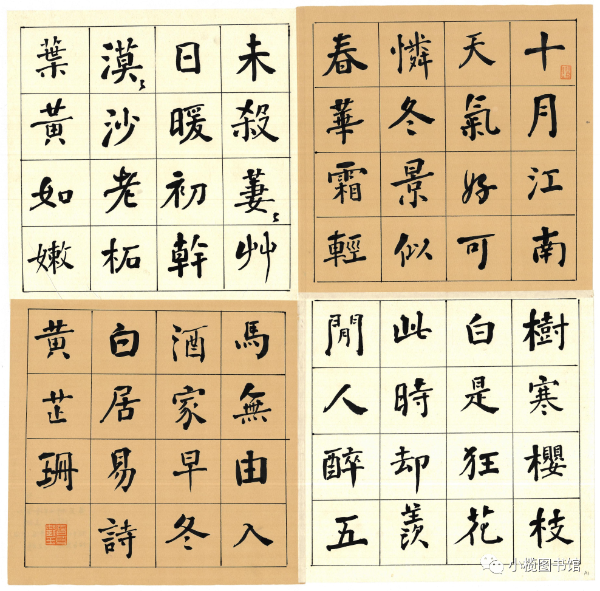 十月江南
天氣好可
憐冬景似
春華霜輕
未殺萋〻艸
日暖初幹
漠〻沙老柘
葉黃如嫩
樹寒櫻枝
白是狂花
此時却羨
閒人醉五
馬無由入
酒家早冬
白居易詩
黃芷珊
小榄图书馆